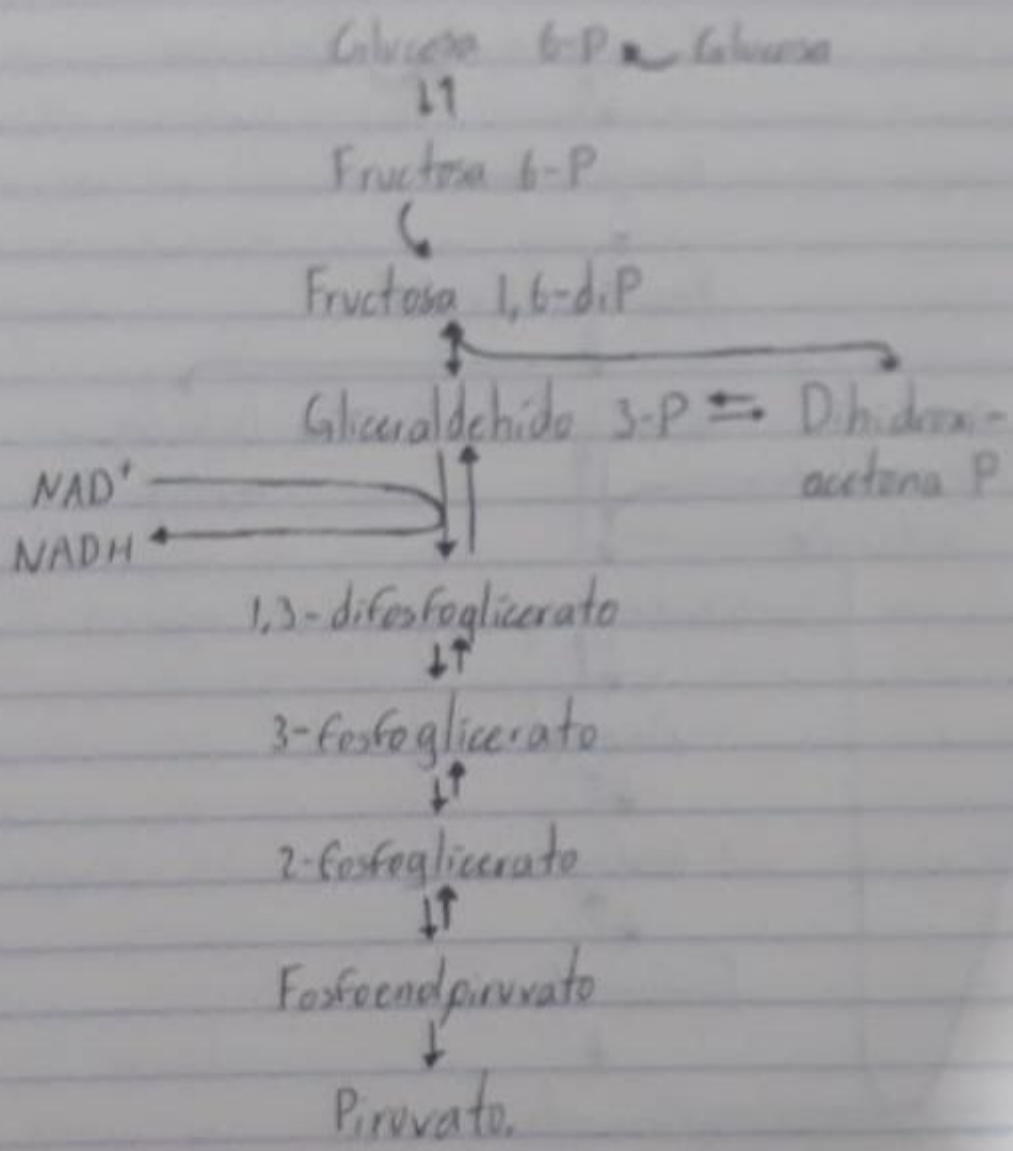 Glucosa 6-P Glucosa
Fructosa 6-P
Fructosa 1,6-diP
Gliceraldehido 3-P ⇆ Dihidroxi-
acetona P
NAD⁺
NADH
1,3-difosfoglicerato
3-fosfoglicerato
2-fosfoglicerato
Fosfoenolpiruvato
Piruvato.